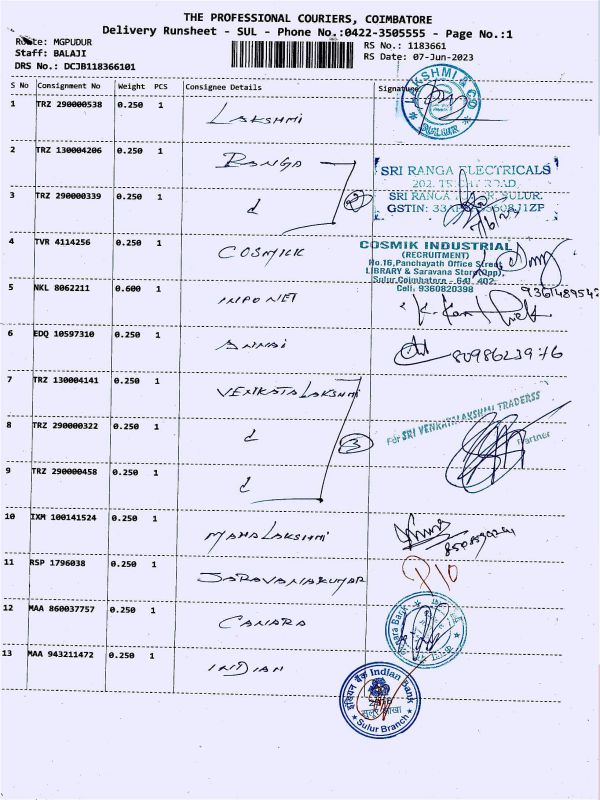 THE PROFESSIONAL COURIERS, COIMBATORE
Delivery Runsheet - SUL - Phone No.:0422-3505555 - Page No.:1
Route: MGPUDUR
Staff: BALAJI
DRS No.: DCJB118366101
RS No.: 1183661
RS Date: 07-Jun-2023
S No Consignment No Weight PCS Consignee Details Signature
1 TRZ 290000538 0.250 1 LAKSHMI
LAKSHMI & CO
2 TRZ 130004206 0.250 1 RANGA
SRI RANGA ELECTRICALS
ROAD,
SRI RANGA SULUR.
GSTIN:
3 TRZ 290000339 0.250 1 d 2
7/6/23
4 TVR 4114256 0.250 1 COSMIKK
COSMIK INDUSTRIAL
(RECRUITMENT)
No.16, Panchayath Office Street
LIBRARY & Saravana Store(Opp),
Sulur, Coimbatore - 641 402.
Cell: 9360820398
5 NKL 8062211 0.600 1 INPONET
6 EDQ 10597310 0.250 1 ANNAI
8098623976
7 TRZ 130004141 0.250 1 VENKATALAKSHMI
For SRI VENKATALAKSHMI TRADERSS
8 TRZ 290000322 0.250 1 d 3
Partner
9 TRZ 290000458 0.250 1 d
10 IXM 100141524 0.250 1 MAHALAKSHMI
11 RSP 1796038 0.250 1 SARAVANAKUMAR
12 MAA 860037757 0.250 1 CANARA
13 MAA 943211472 0.250 1 INDIAN
इंडियन बैंक Indian Bank
सुलूर शाखा
Sulur Branch